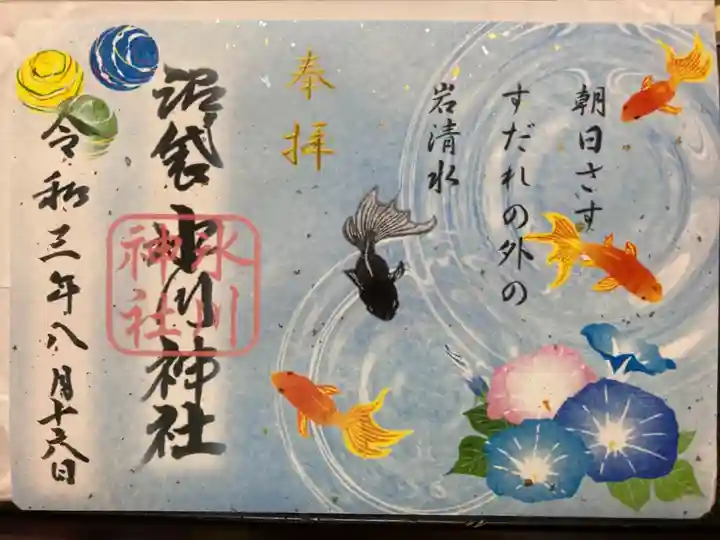 朝日さす
すだれの外の
岩清水
奉拝
沼袋氷川神社
氷川
神社
令和三年八月十六日